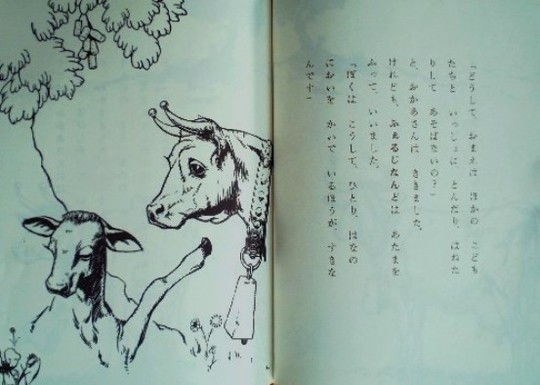 「どうして、おまえは ほかの こども
たちと いっしょに、とんだり、はねた
りして あそばないの？」
と、おかあさんは ききました。
けれども、ふぇるじなんどは あたまを
ふって、いいました。
「ぼくは こうして、ひとり、はなの
においを かいで いるほうが、すきな
んです」